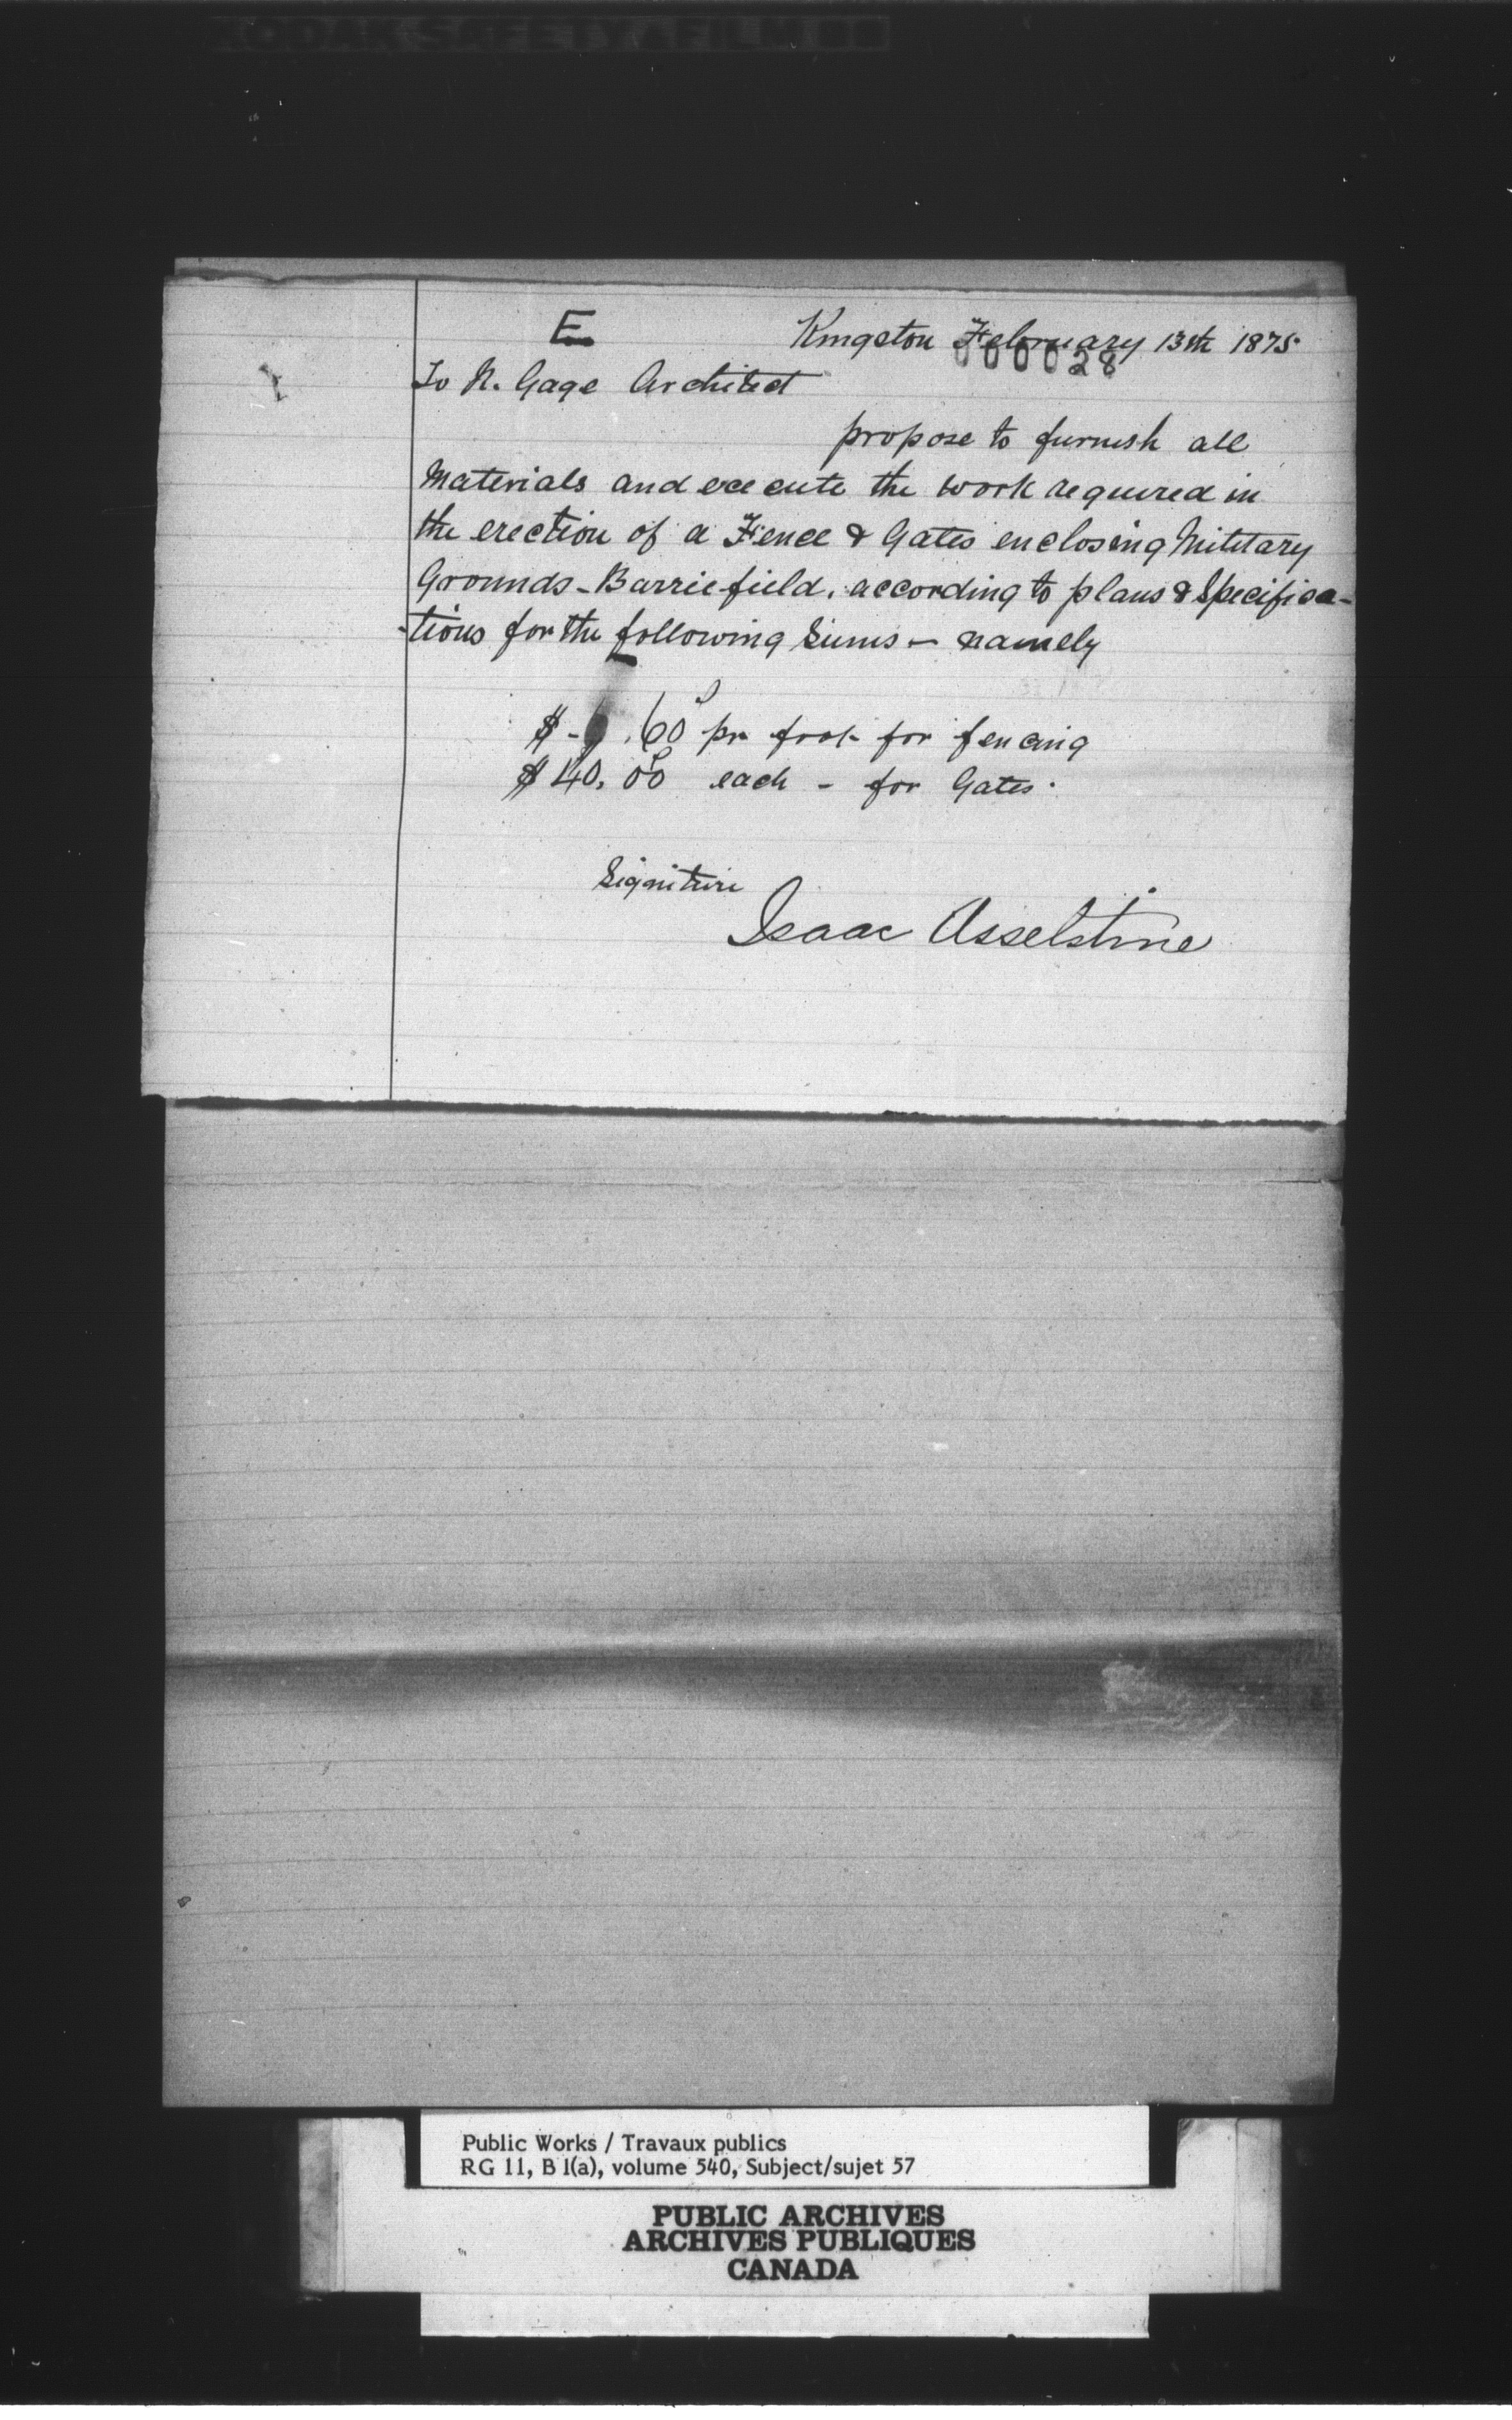 KODAK SAFETY FILM
E
Kingston February 13th 1875
000028
To N. Gage Architect
propose to furnish all
Materials and execute the work required in
the erection of a Fence & Gates enclosing Military
Grounds - Barriefield, according to plans & Specifica-
-tions for the following Sums - namely
$ - .60 pr foot for fencing
$ 40.00 each - for Gates.
Signiture
Isaac Asselstine
Public Works / Travaux publics
RG 11, B 1(a), volume 540, Subject/sujet 57
PUBLIC ARCHIVES
ARCHIVES PUBLIQUES
CANADA